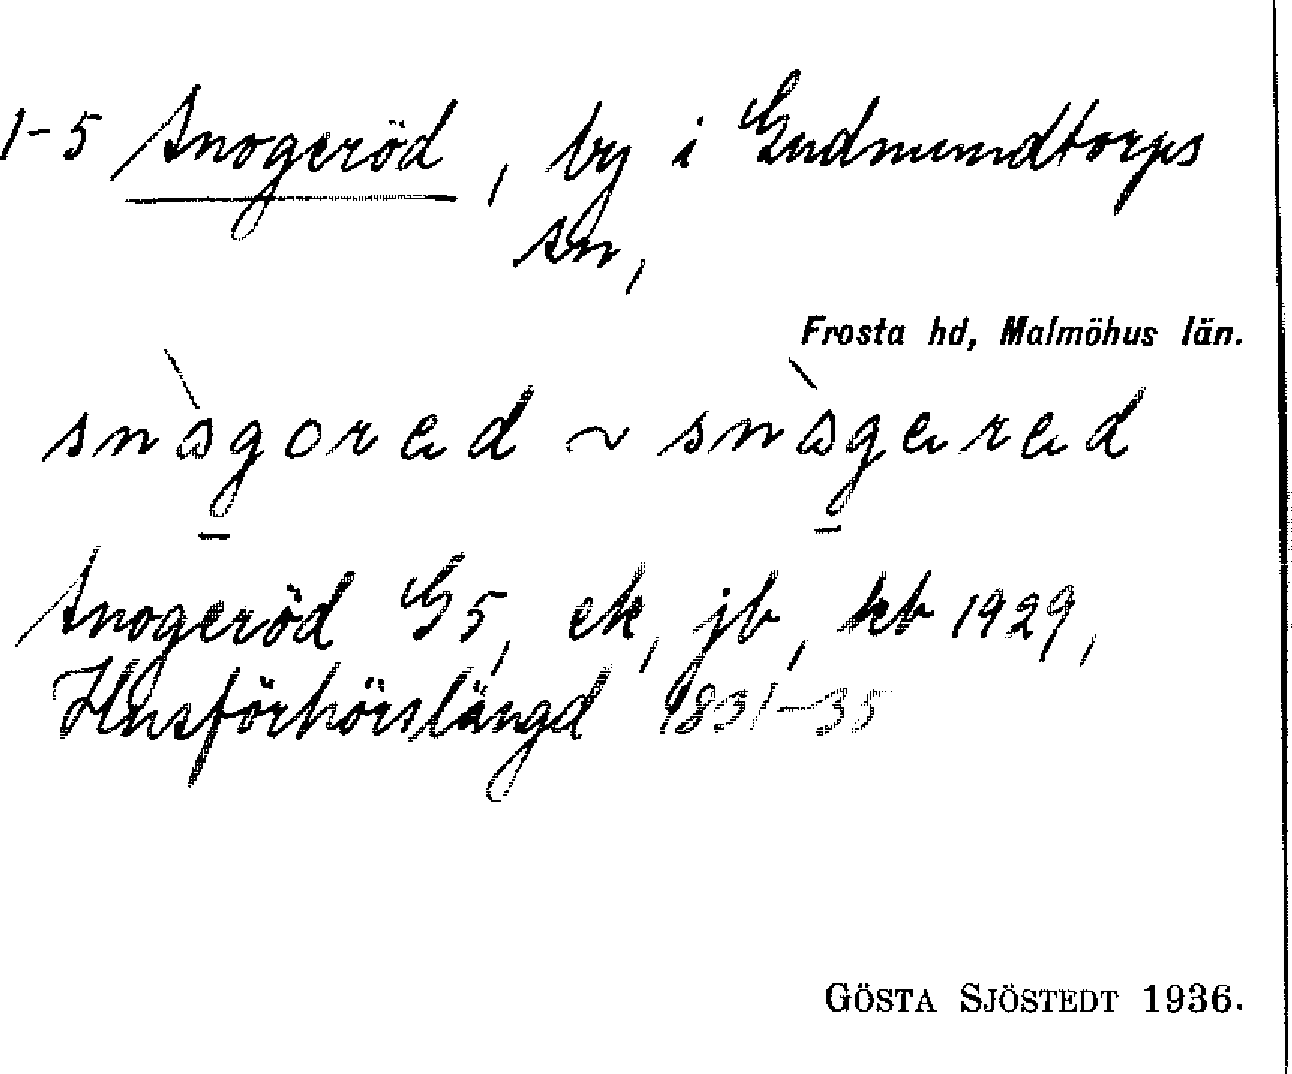 1-5 Snogeröd, by i Gudmundtorps
sn,
Frosta hd, Malmöhus län.
snàgored ~ snàgered
Snogeröd G5, ek, jb, kb 1929,
Husförhörslängd 1831-35
GÖSTA SJÖSTEDT 1936.